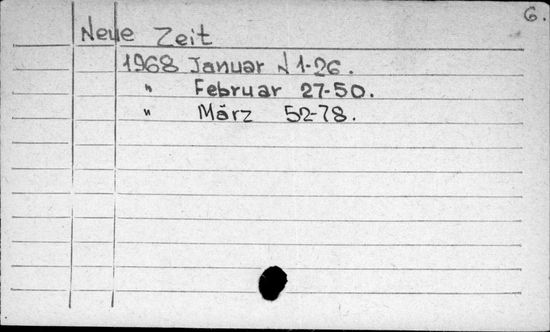 6.
Neue Zeit
1968 Januar N 1-26.
" Februar 27-50.
" März 52-78.